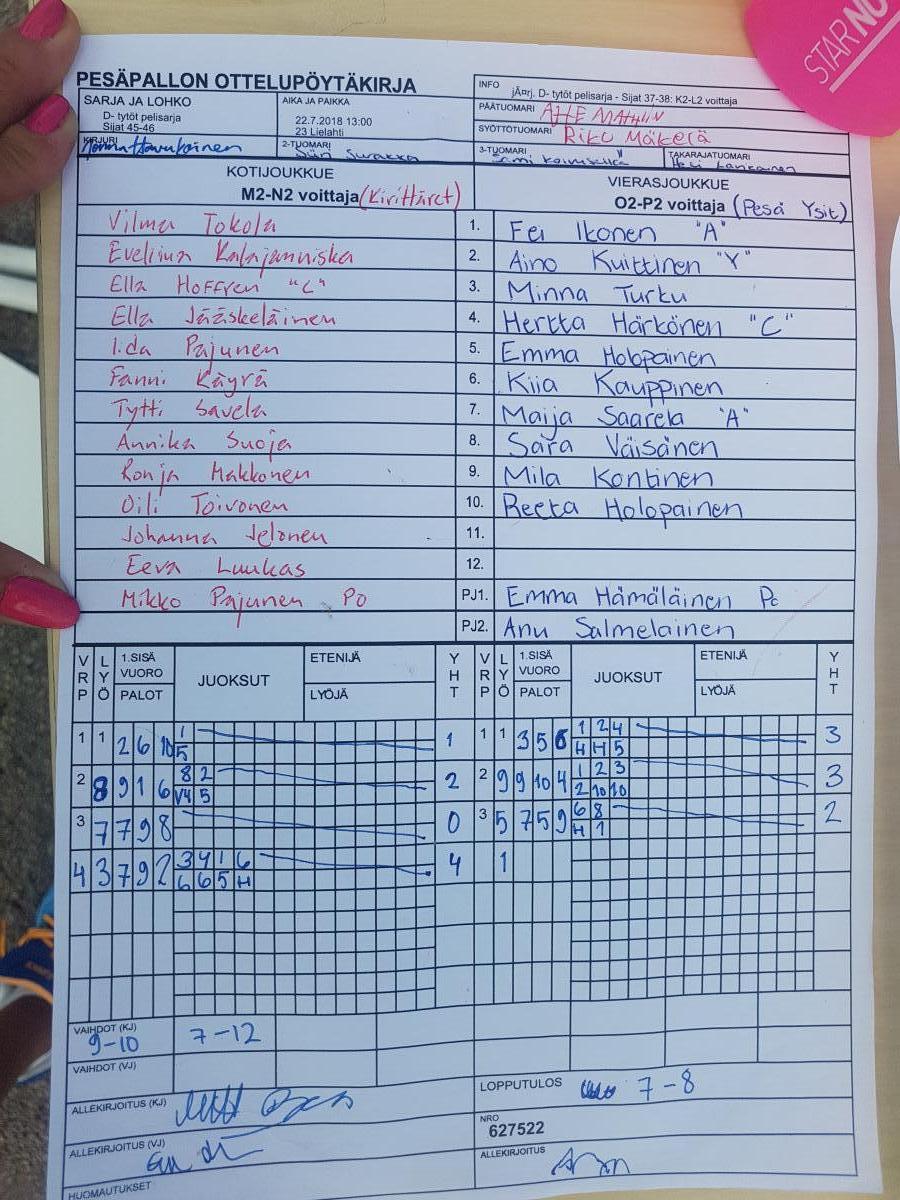 STARNU
PESÄPALLON OTTELUPÖYTÄKIRJA
INFO
jÃ¤rj. D- tytöt pelisarja - Sijat 37-38: K2-L2 voittaja
SARJA JA LOHKO
D- tytöt pelisarja
Sijat 45-46
AIKA JA PAIKKA
22.7.2018 13:00
23 Lielahti
PÄÄTUOMARI
SYÖTTÖTUOMARI Riku Mäkelä
KIRJURI
2-TUOMARI
3-TUOMARI Sami
TAKARAJATUOMARI
KOTIJOUKKUE
M2-N2 voittaja (Kirittäret)
VIERASJOUKKUE
O2-P2 voittaja (Pesä Ysit)
Vilma Tokola 1. Fei Ikonen "A"
Eveliina Kalajanniska 2. Aino Kuittinen "Y"
Ella Hoffren "C" 3. Minna Turku
Ella Jääskeläinen 4. Hertta Härkönen "C"
Iida Pajunen 5. Emma Holopainen
Fanni Käyrä 6. Kiia Kauppinen
Tytti Savela 7. Maija Saarela "A"
Annika Suoja 8. Sara Väisänen
Ronja Makkonen 9. Mila Kontinen
Oili Toivonen 10. Reeta Holopainen
Johanna Jelonen 11.
Eeva Luukas 12.
Mikko Pajunen PO PJ1. Emma Hämäläinen Pc
PJ2. Anu Salmelainen
VRP LYÖ 1.SISÄ VUORO PALOT JUOKSUT ETENIJÄ LYÖJÄ YHT VRP LYÖ 1.SISÄ VUORO PALOT JUOKSUT ETENIJÄ LYÖJÄ YHT
1 1 2 6 10 1 1 1 1 3 5 6 1 2 4 3
5 H H 5
2 8 9 1 6 8 2 2 2 9 9 10 4 1 2 3 3
V4 5 2 10 10
3 7 7 9 8 0 3 5 7 5 9 6 8 2
H 1
4 3 7 9 2 3 4 1 6 4 1
6 6 5 H
VAIHDOT (KJ)
9-10 7-12
VAIHDOT (VJ)
ALLEKIRJOITUS (KJ)
LOPPUTULOS 7-8
NRO
627522
ALLEKIRJOITUS (VJ)
ALLEKIRJOITUS
HUOMAUTUKSET